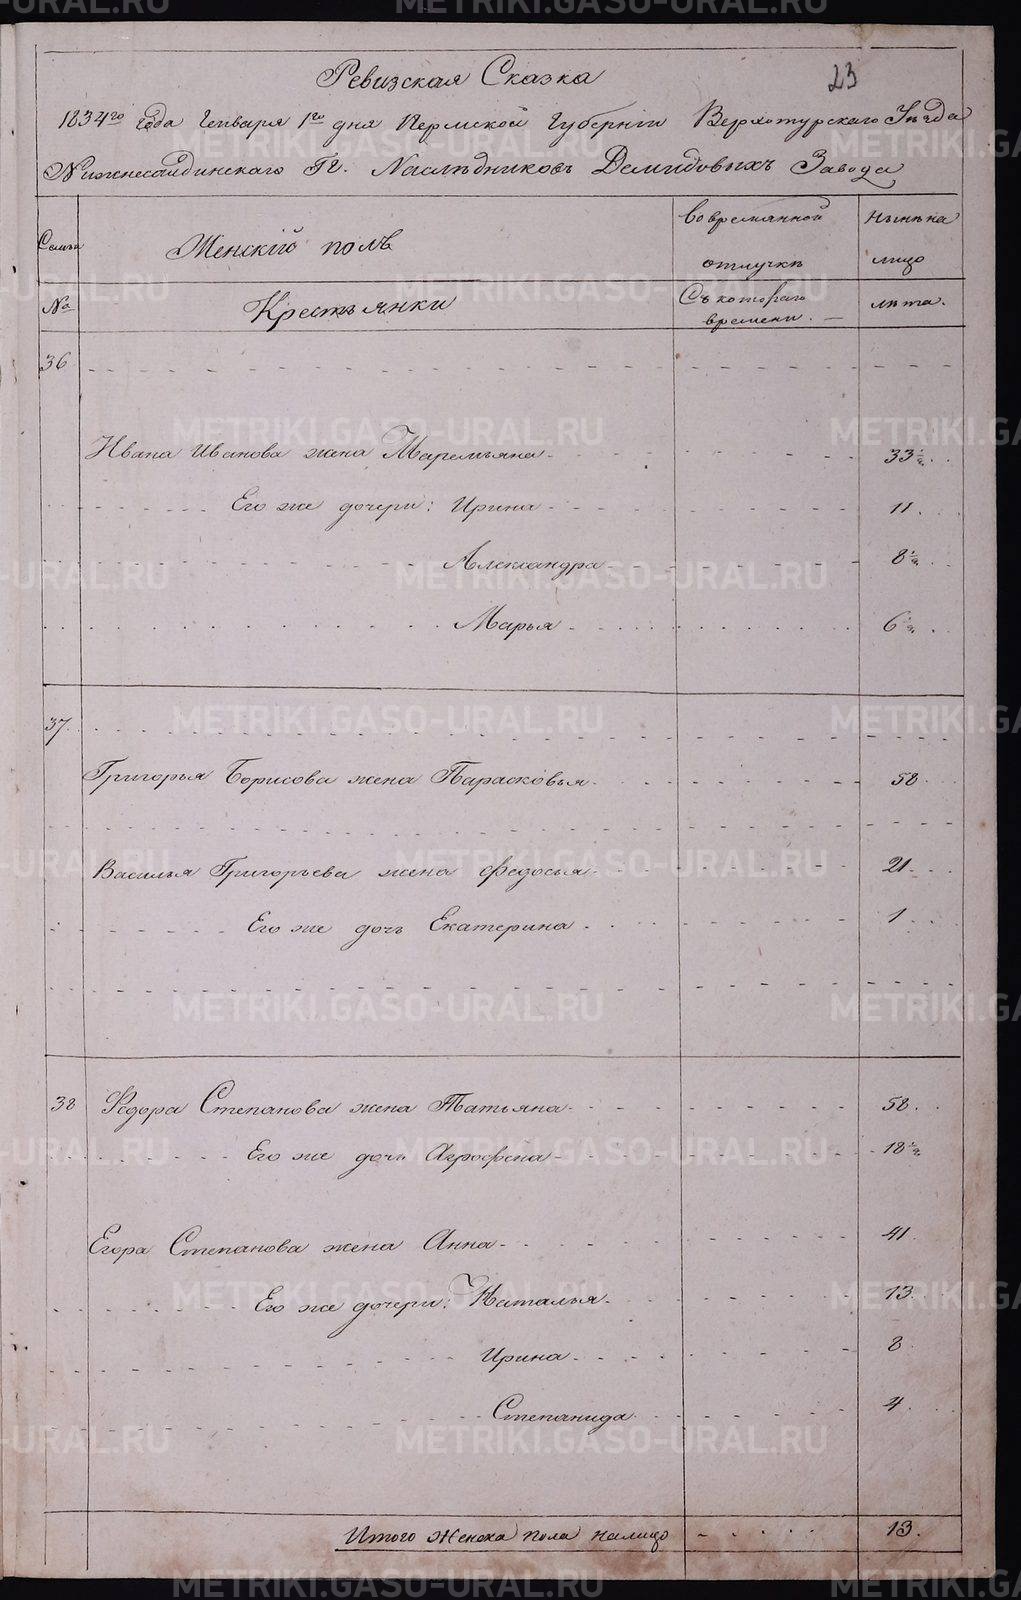 Ревизская Сказка
23
1834го года Генваря 1го дня Пермской Губернiи Верхотурскаго Уѣзда
Нижнесалдинскаго Гг. Наслѣдниковъ Демидовыхъ Завода
Семьи
Женскiй полъ
во времянной отлучкѣ
Нынѣ на лицо
№
Крестьянки
Съ котораго времени.
лѣта.
36
Ивана Иванова жена Маремьяна 33½
Его же дочери: Ирина 11
Александра 8½
Марья 6½
37
Григорья Борисова жена Парасковья 58
Василья Григорьева жена Федосья 21
Его же дочь Екатерина 1
38 Федора Степанова жена Татьяна 58
Его же дочь Агрофена 18½
Егора Степанова жена Анна 41
Его же дочери: Наталья 13
Ирина 8
Степанида 4
Итого Женска пола налицо 13.
METRIKI.GASO-URAL.RU